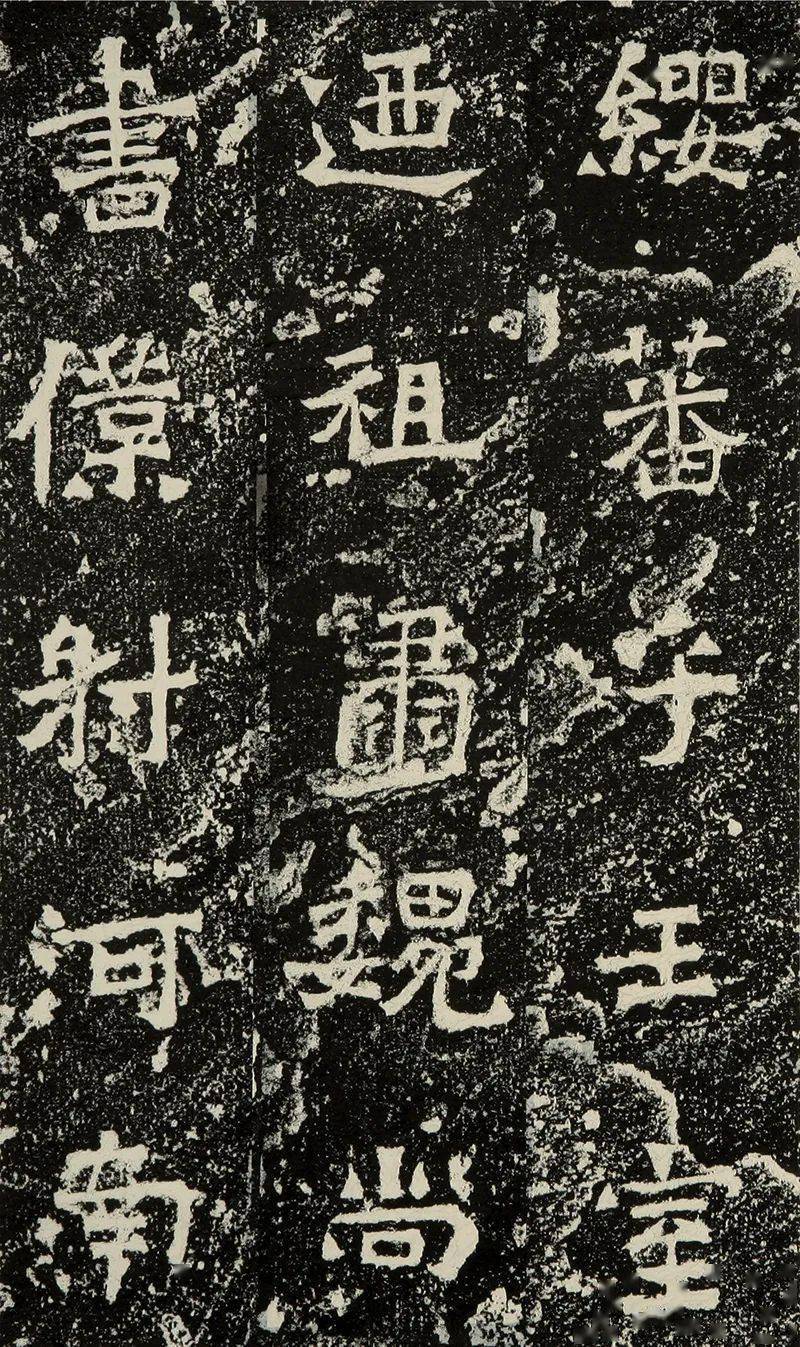 纓蕃乎王室
迺祖魏尚
書僕射河南